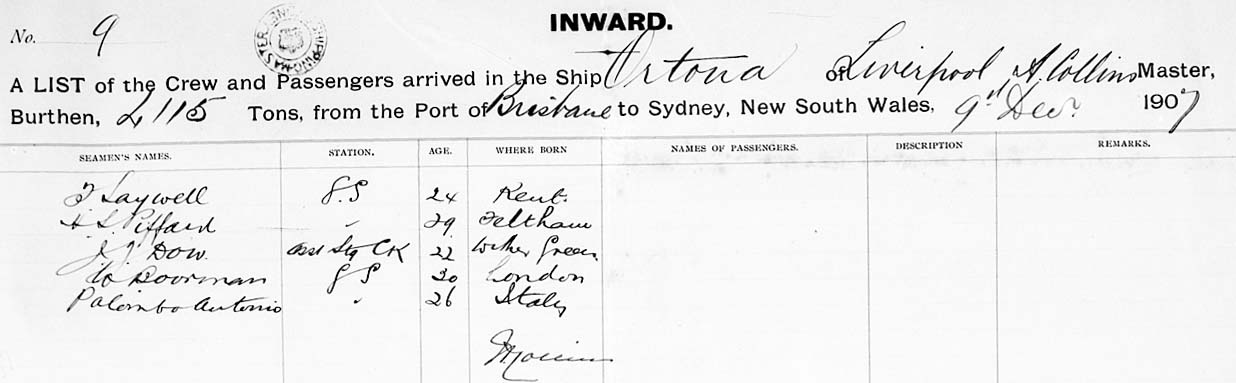 INWARD.
No. 9
A LIST of the Crew and Passengers arrived in the Ship Ortona of Liverpool A. Collins Master,
Burthen, 4115 Tons, from the Port of Brisbane to Sydney, New South Wales, 9th Decr. 1907
SEAMEN'S NAMES. STATION. AGE. WHERE BORN NAMES OF PASSENGERS. DESCRIPTION REMARKS.
F Laywell G.S 24 Kent.
H S. Piffard " 29 Feltham
J J Dow. Asst Stg CK 22 Wither Green
W Doorman G S 30 London
Palombo Antonio " 26 Italy